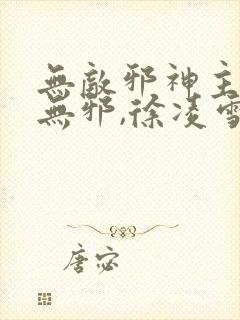 無敵邪神主
無邪,徐凌雪
唐宓